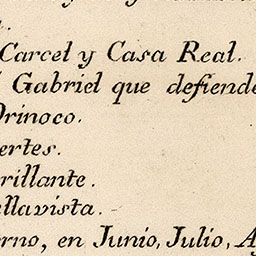 Carcel y Casa Real.
Gabriel que defiende
Orinoco.
ertes.
rillante.
llavista.
rno, en Junio, Julio, A